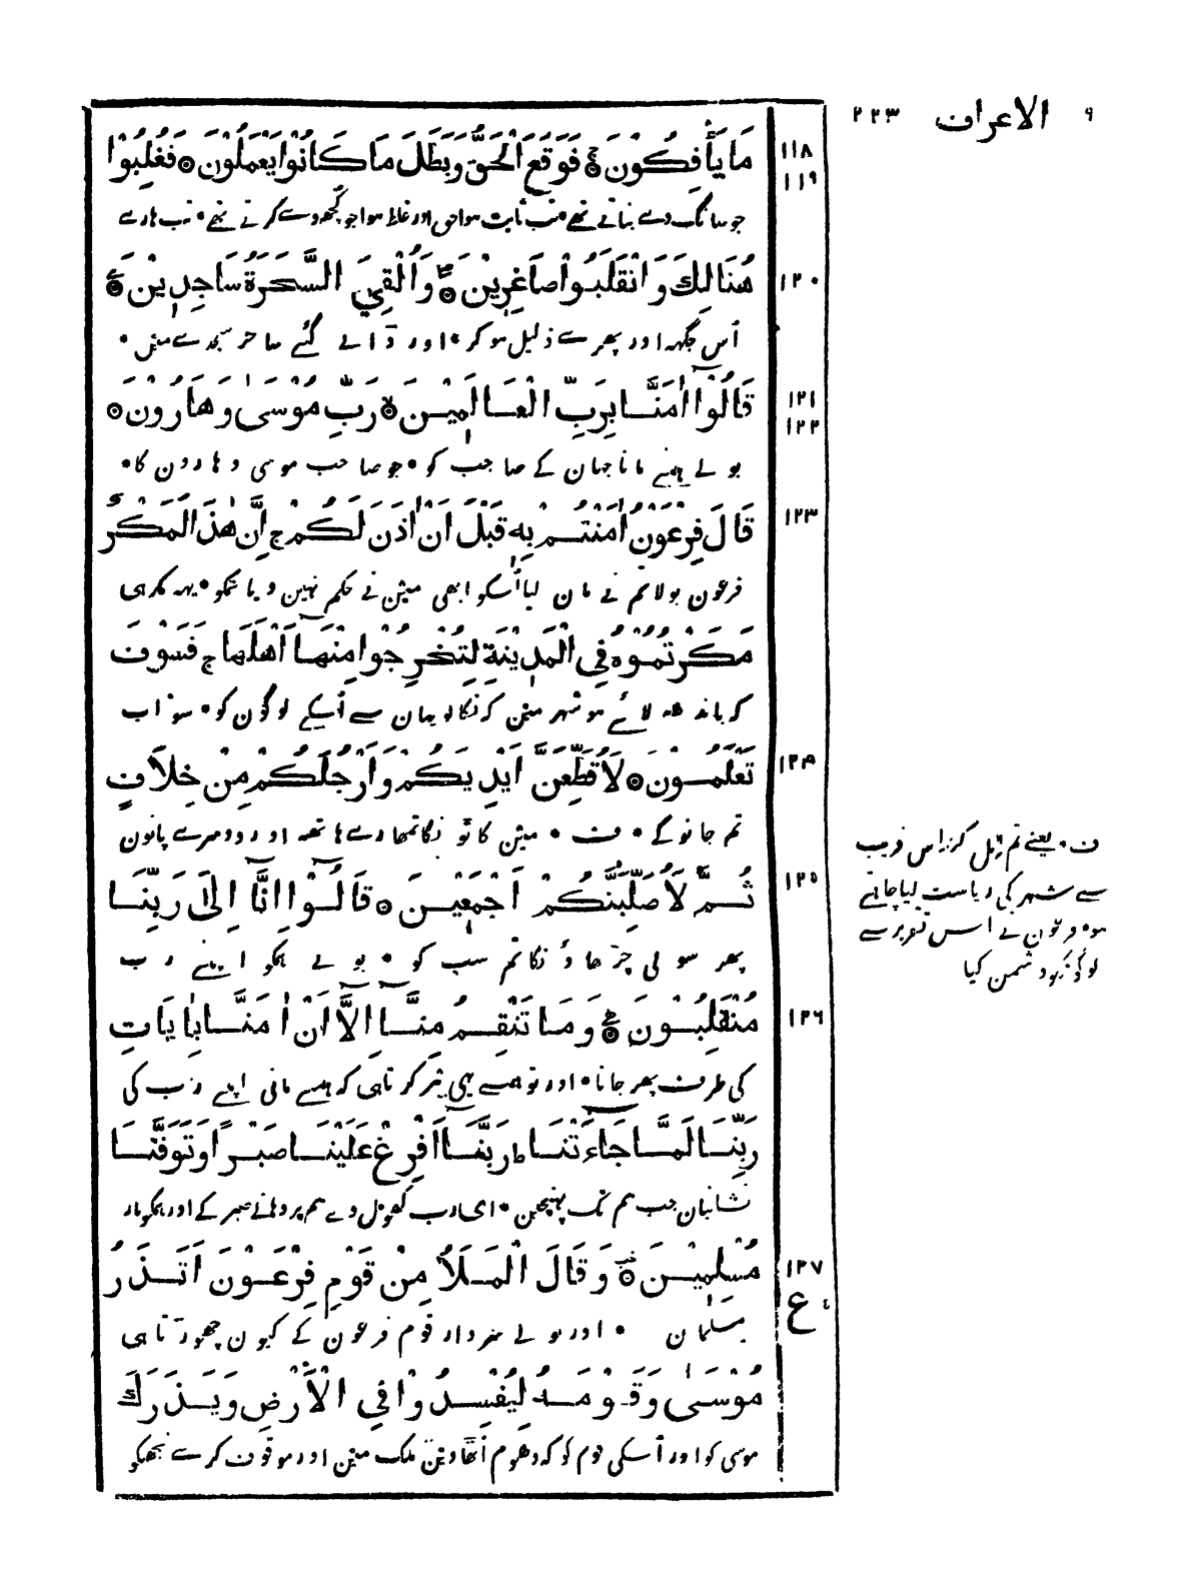 ٩ الاعراف ٢٢٣
١١٨
١١٩
مَا يَأْفِكُوْنَ ۞ فَوَقَعَ الْحَقُّ وَبَطَلَ مَا كَانُوْا يَعْمَلُوْنَ ۞ فَغُلِبُوْا
جو سانگ وے بناتے تھے • تب ثابت ہوا حق اور غلط ہوا جو کچھ وے کرتے تھے • تب ہارے
١٢٠
هُنَالِكَ وَانْقَلَبُوْا صَاغِرِيْنَ ۞ وَاُلْقِيَ السَّحَرَةُ سَاجِدِيْنَ ۞
اُس جگہہ اور پھرے ذلیل ہو کر • اور ڈالے گئے ساحر سجدے مین •
١٢١
١٢٢
قَالُوْٓا اٰمَنَّا بِرَبِّ الْعَالَمِيْنَ ۞ رَبِّ مُوْسٰى وَهَارُوْنَ ۞
بولے ہمنے مانا جہان کے صاحب کو • جو صاحب موسی و ہارون کا •
١٢٣
قَالَ فِرْعَوْنُ اٰمَنْتُمْ بِهٖ قَبْلَ اَنْ اٰذَنَ لَكُمْ ج اِنَّ هٰذَا لَمَكْرٌ
فرعون بولا تم نے مان لیا اُسکو ابھی مین نے حکم نہین دیا تمکو • یہہ مکر ہی
مَكَرْتُمُوْهُ فِي الْمَدِيْنَةِ لِتُخْرِجُوْا مِنْهَآ اَهْلَهَا ج فَسَوْفَ
کر باندھہ لائے ہو شہر مین کہ نکالو یہان سے اُسکے لوگون کو • سو اب
١٢٤
تَعْلَمُوْنَ ۞ لَاُقَطِّعَنَّ اَيْدِيَكُمْ وَاَرْجُلَكُمْ مِنْ خِلَافٍ
تم جانوگے • ف • مین کاٹونگا تمھارے ہاتھہ اور دوسرے پانون
١٢٥
ثُمَّ لَاُصَلِّبَنَّكُمْ اَجْمَعِيْنَ ۞ قَالُوْٓا اِنَّآ اِلٰى رَبِّنَا
پھر سولی چڑھاؤنگا تم سب کو • بولے ہمکو اپنے رب
١٢٦
مُنْقَلِبُوْنَ ۞ وَمَا تَنْقِمُ مِنَّآ اِلَّآ اَنْ اٰمَنَّا بِاٰيَاتِ
کی طرف پھر جانا • اور تو ہمسے یہی بیر کرتا ہی کہ ہمسے مانی اپنے رب کی
رَبِّنَا لَمَّا جَآءَتْنَا ط رَبَّنَآ اَفْرِغْ عَلَيْنَا صَبْرًا وَتَوَفَّنَا
نشانیان جب ہم تک پہنچین • ای رب کھول دے ہم پر دہانے صبر کے اور ہمکو مار
١٢٧
مُسْلِمِيْنَ ۞ وَقَالَ الْمَلَاُ مِنْ قَوْمِ فِرْعَوْنَ اَتَذَرُ
ع
مسلمان • اور بولے سردار قوم فرعون کے کیون چھوڑتا ہی
مُوْسٰى وَقَوْمَهُ لِيُفْسِدُوْا فِي الْاَرْضِ وَيَذَرَكَ
موسی کو اور اُسکی قوم کو کہ دھوم اُٹھاوین ملک مین اور موقوف کرے تجھکو
ف • یعنے تم مل کر اس فریب
سے شہر کی ریاست لیا چاہتے
ہو • فرعون نے اس تقریر سے